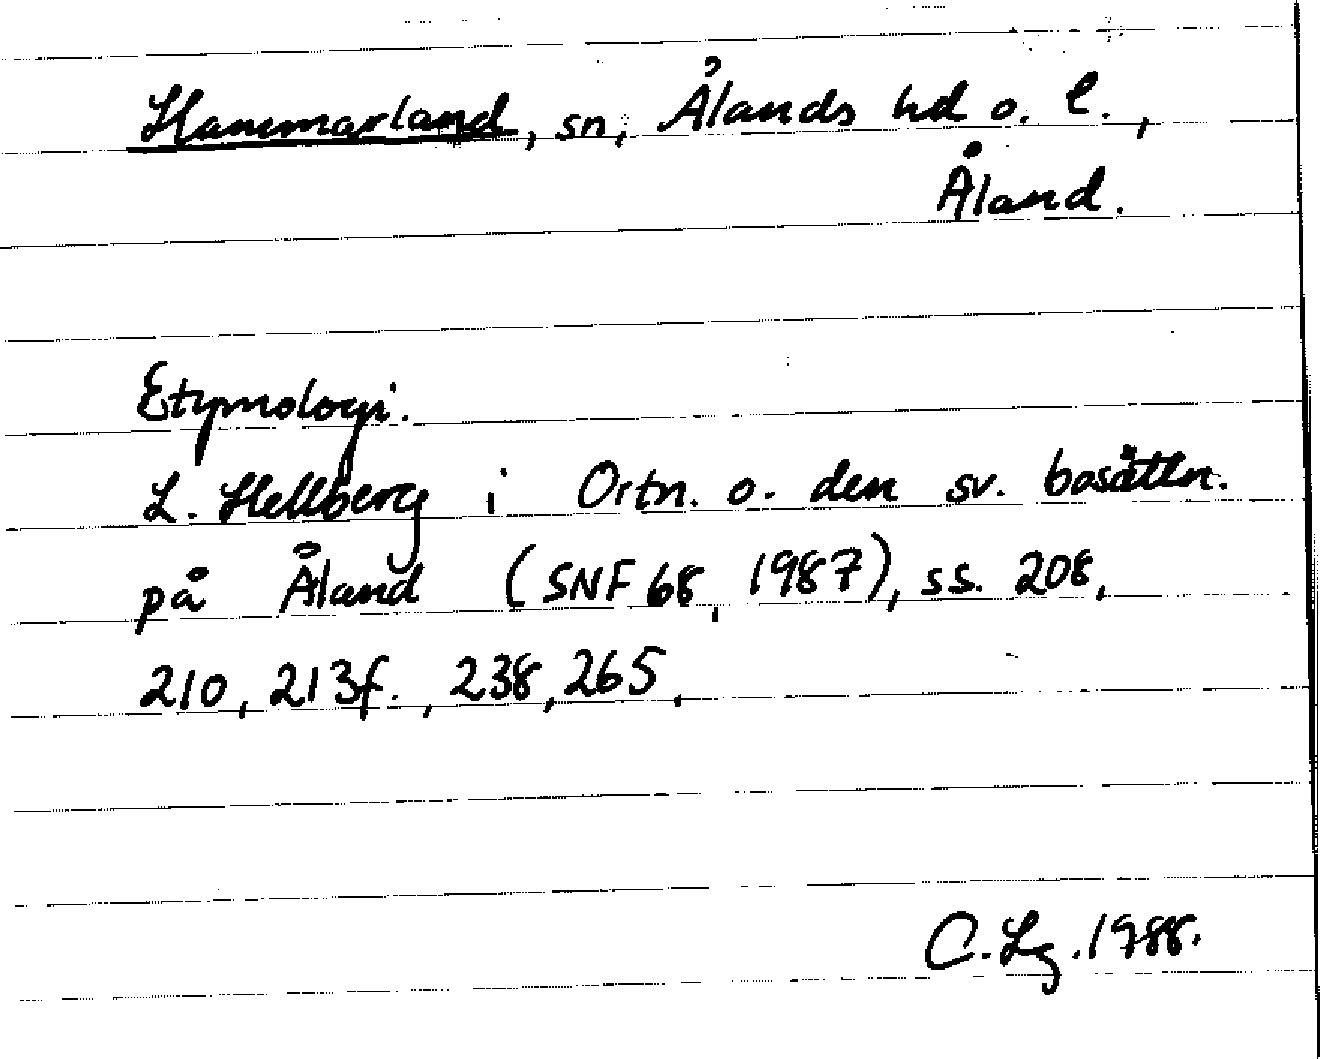 Hammarland, sn, Ålands hd o. l.,
Åland.
Etymologi.
L. Hellberg i Ortn. o. den sv. bosättn.
på Åland (SNF 68, 1987), ss. 208,
210, 213f., 238, 265.
C. Lg. 1988.